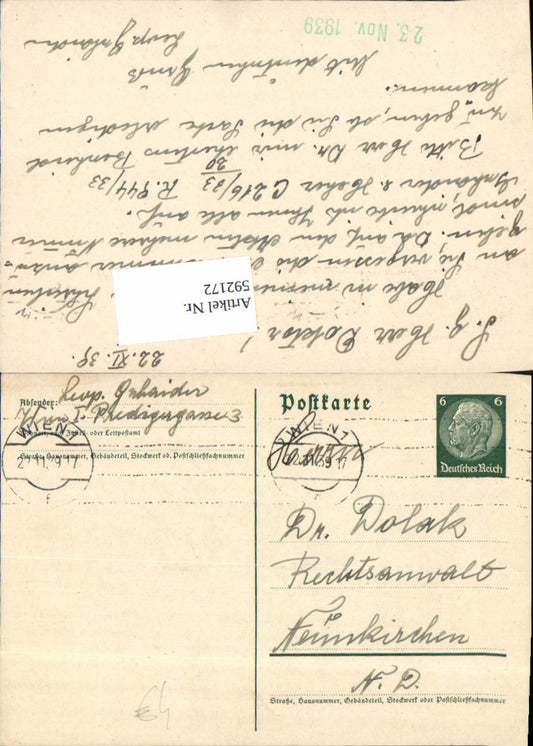 23. Nov. 1939
22. XI. 39.
S. g. Herr Doktor!
Habe in meinem Schreiben
an Sie vergessen die Nummer anzu-
geben. Da auf den Akten mehrere Nummer
sind,
& Hofer C 216/33 R. 944/33
39
Bitte Herr Dr. mir Bescheid
zu geben, ob Sie die Sache erledigen
kommen.
Mit deutschem Gruß
Leop.
Artikel Nr.
592172
Absender: Leop.
Wien I. Predigergasse 3
Wohnort, auch Zustell- oder Leitpostamt
Straße, Hausnummer, Gebäudeteil, Stockwerk od. Postschließfachnummer
WIEN
Postkarte
6 6
Deutsches Reich
WIEN 1
Herrn
Dr. Dolak
Rechtsanwalt
Neunkirchen
N. D.
Straße, Hausnummer, Gebäudeteil, Stockwerk oder Postschließfachnummer